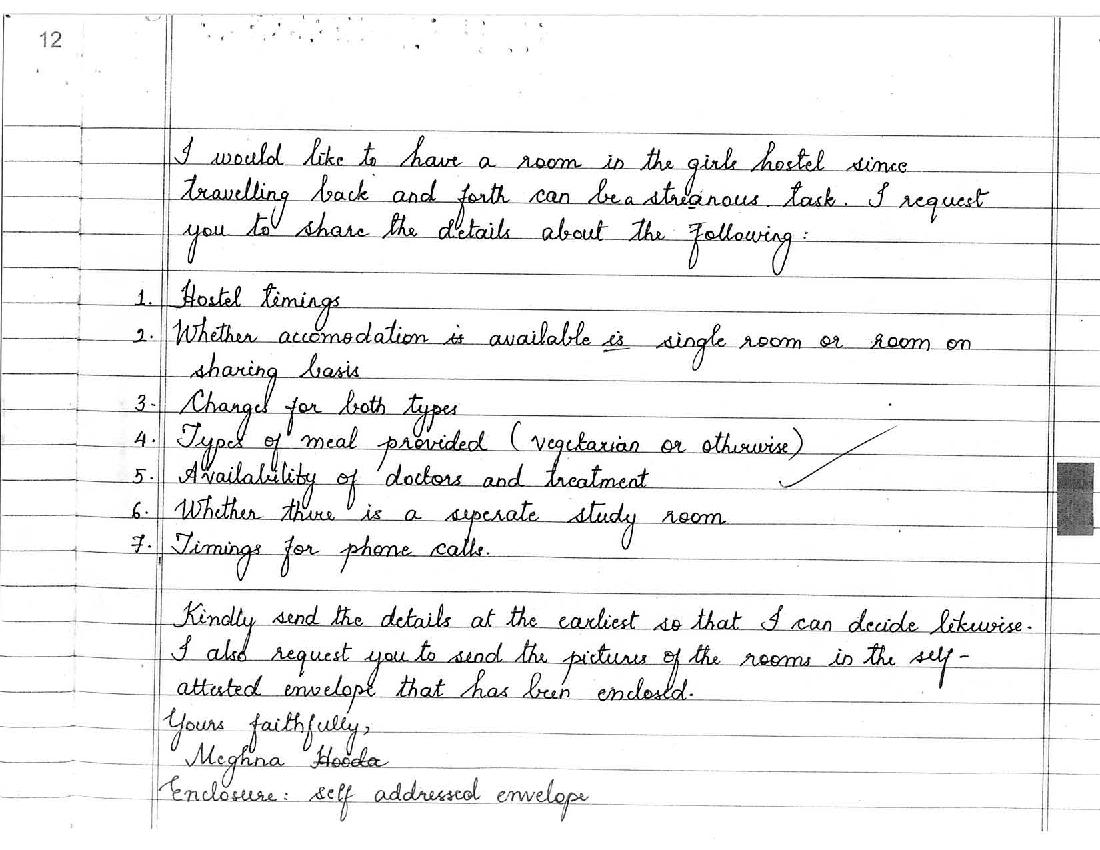 12
I would like to have a room in the girls hostel since
travelling back and forth can be a streanous task. I request
you to share the details about the following:
1. Hostel timings
2. Whether accomodation is available is single room or room on
sharing basis
3. Charges for both types
4. Types of meal provided (vegetarian or otherwise)
5. Availability of doctors and treatment
6. Whether there is a seperate study room
7. Timings for phone calls.
Kindly send the details at the earliest so that I can decide likewise.
I also request you to send the pictures of the rooms in the self-
attested envelope that has been enclosed.
Yours faithfully,
Meghna Hooda
Enclosure: self addressed envelope